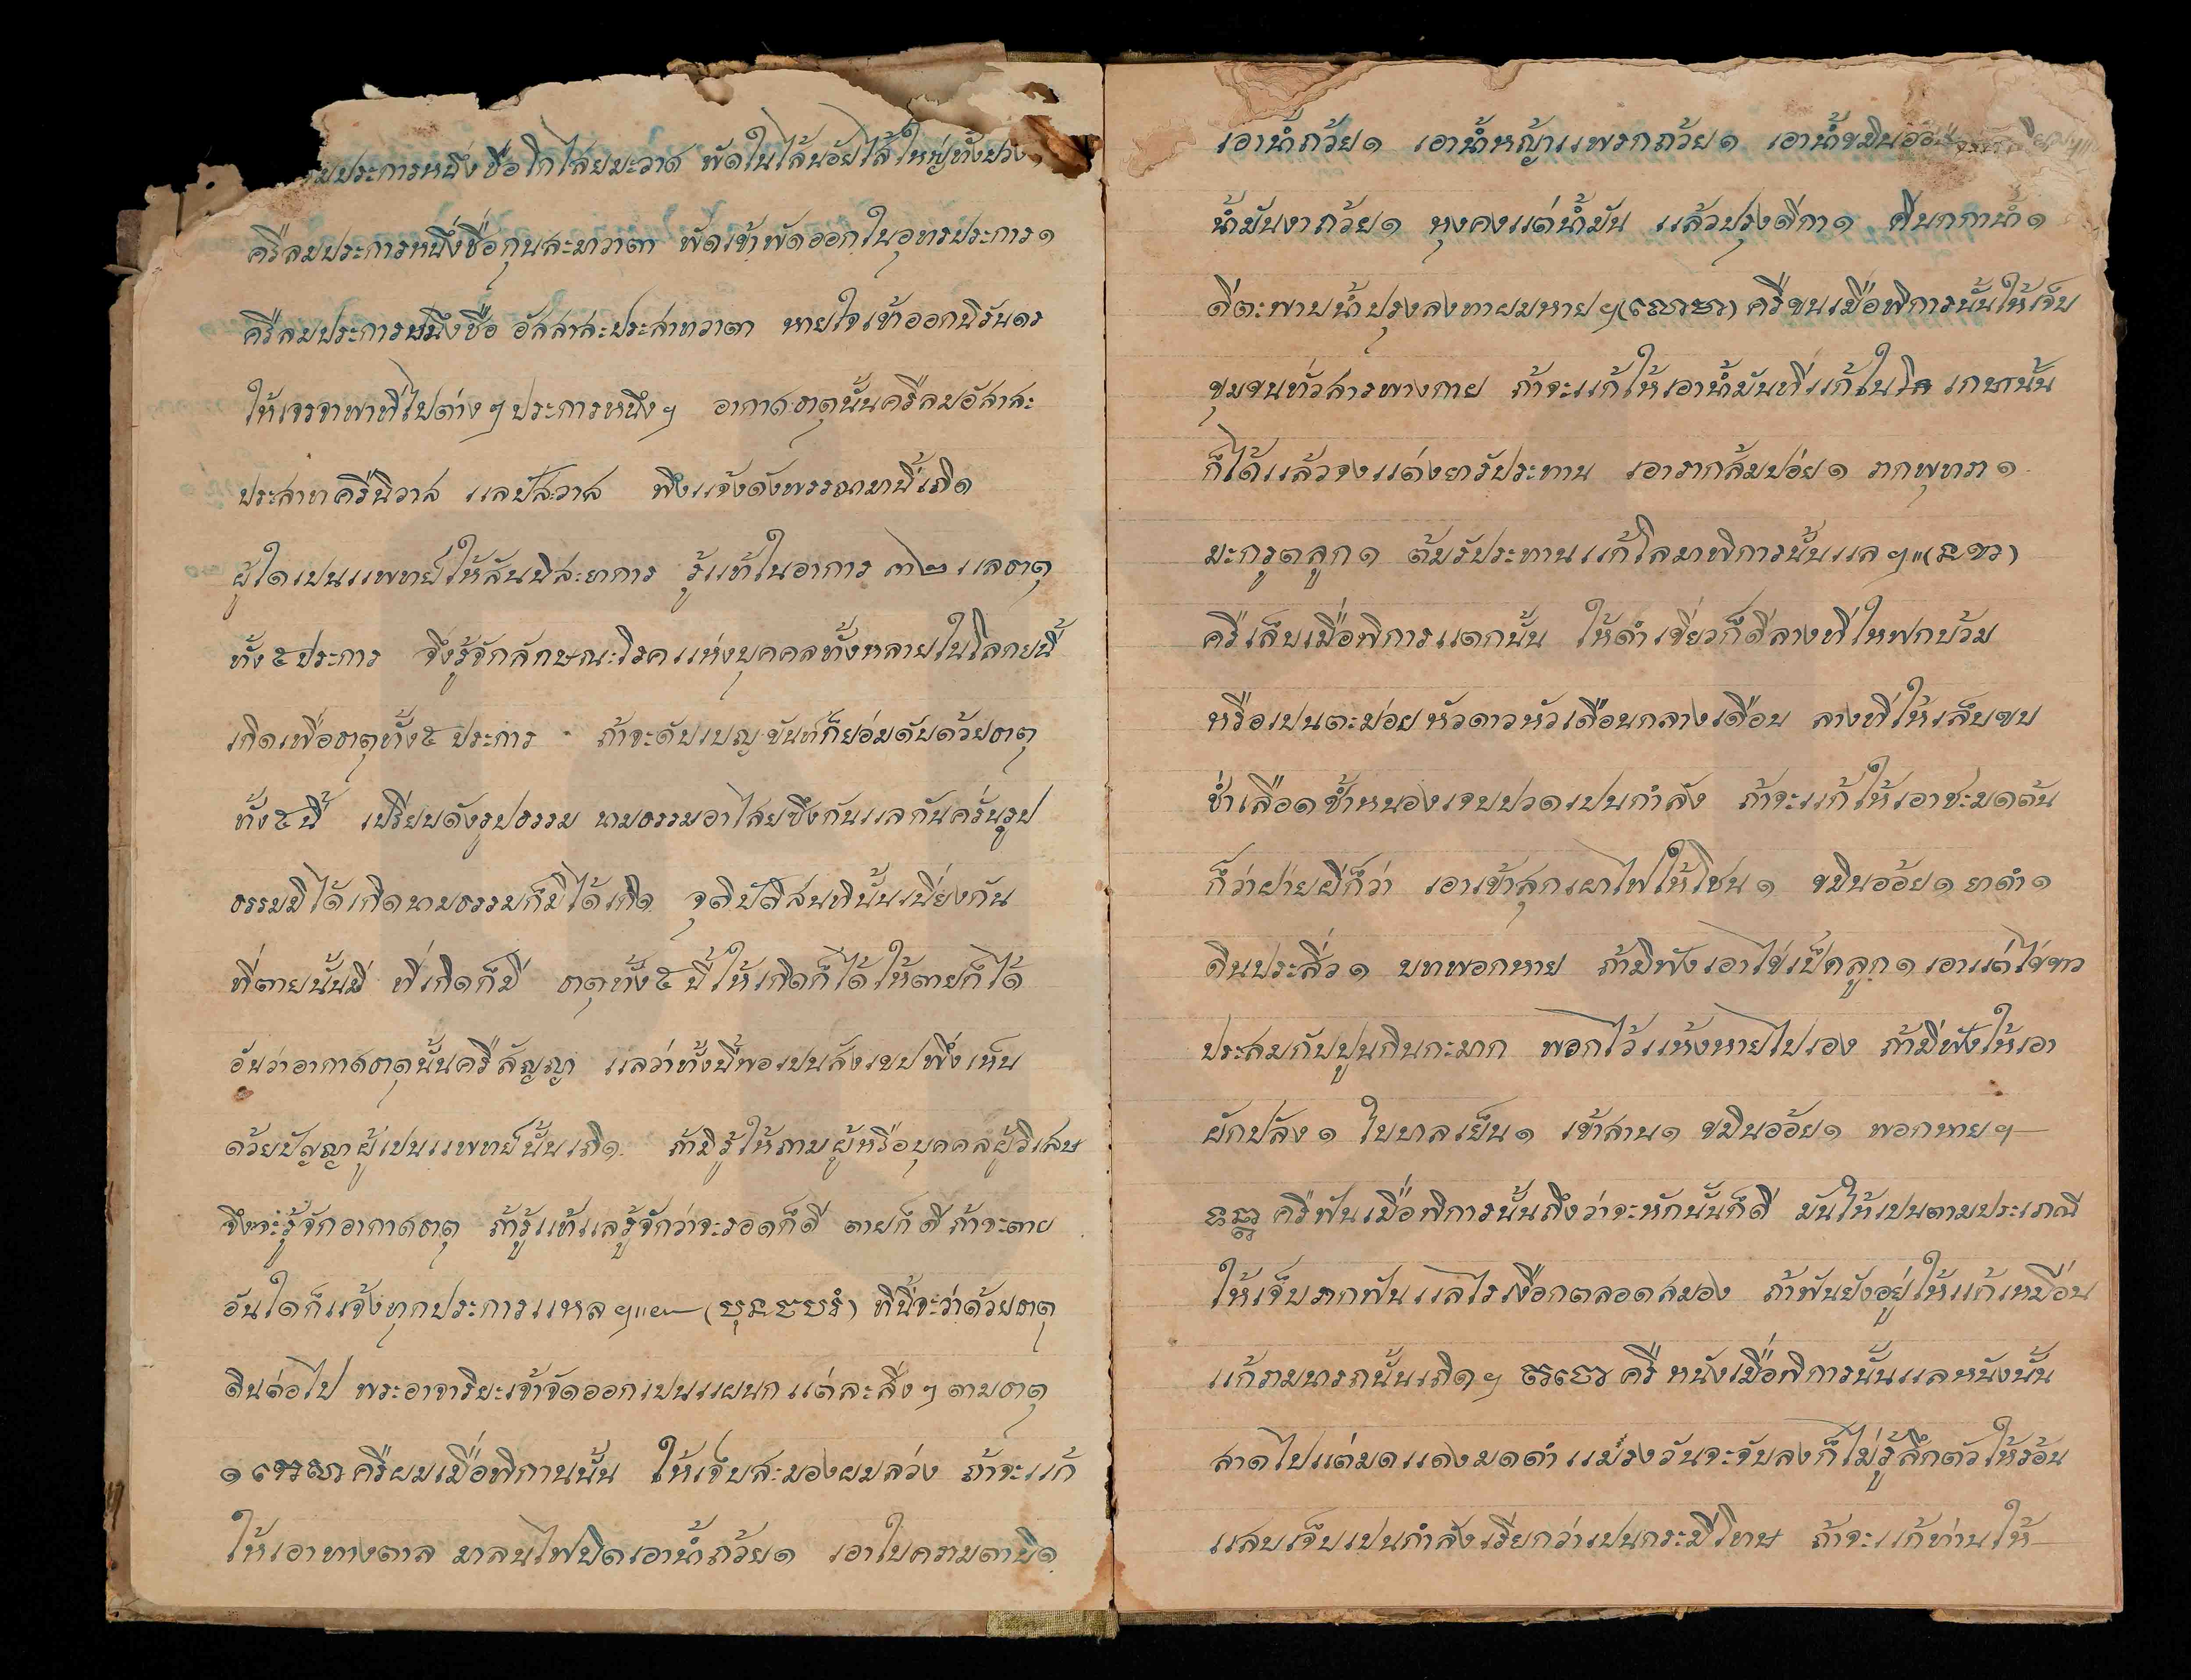 ลมประการหนึ่งชื่อโกไสยมะวาต พัดในไส้น้อยไส้ใหญ่ทั้งปวง
ครืลมประการหนึ่งชื่อกุนสะมาวาตา พัดเข้าพัดออกในอุทรประการ๑
ครืลมประการหนึ่งชื่อ อัสสาสะประสาทวาตา หายใจเข้าออกนิรันดร
ให้เจรจาพาทีไปต่าง ๆ ประการหนึ่งฯ อากาศธาตุนั้นครืลมอัสาสะ
ประสาทครืนิวาส แลปัสะวาส พึงแจ้งดังพรรณามานี้เถิด
ผู้ใดเปนแพทย์ให้สันนิสะทาการ รู้แท้ในอาการ ๓๒ แลธาตุ
ทั้ง๕ประการ จึงรู้จักลักษณะโรคแห่งบุคคลทั้งหลายในโลกยนี้
เกิดเพื่อธาตุทั้ง๕ ประการ ถ้าจะดับเบญจขันท์ก็ย่อมดับด้วยธาตุ
ทั้ง๕นี้ เปรียบดังรูปธรรม นามธรรมอาไสยซึ่งกันแลกันครั้นรูป
ธรรมมิได้เกิดนามธรรมก็มิได้เกิด จุติปัติสนทินั้นเนี่ยงกัน
ที่ตายนั้นมี ที่เกิดก็มี ธาตุทั้ง๕ นี้ให้เกิดก็ได้ให้ตายก็ได้
อันว่าอากาศธาตุนั้นครืสัญญา แลว่าทั้งนี้พอเปนสังเขปพึ่งเห็น
ด้วยปัญญาผู้เปนแพทย์นั้นเถิด ถ้ามิรู้ให้ถามผู้หรือบุคคลผู้วิเสษ
จึงจะรู้จักอากาศธาตุ ถ้ารู้แท้แลรู้จักว่าจะรอดก็ดี ตายก็ดีถ้าจะตาย
อันใดก็แจ้งทุกประการแหลฯ ทีนี้จะว่าด้วยธาตุ
ดินต่อไป พระอาจาริยะเจ้าจัดออกเปนแผนกแต่ละสิ่ง ๆ ตามธาตุ
๑ ครืผมเมื่อพิกานนั้น ให้เจ็บสะมองผมล่วง ถ้าจะแก้
ให้เอาทางตาล มาลนไฟบิดเอาน้ำถ้วย๑ เอาใบครามตำบิ๑
เอาน้ำถ้วย๑ เอาน้ำหญ้าแพรกถ้วย๑ เอาน้ำขมินอ้อย
น้ำมันงาถ้วย๑ หุงคงแต่น้ำมัน แล้วปรุงดีกา๑ ดีนกกาน้ำ๑
ดีตะพาบน้ำปรุงลงทาผมหายฯ ครืขนเมื่อพิการนั้นให้เจ็บ
ขุมขนทั่วสารพางกาย ถ้าจะแก้ให้เอาน้ำมันที่แก้ใน เกษานั้น
ก็ได้แล้วจงแต่งยารัประทาน เอารากส้มป่อย๑ รากพุทรา๑
มะกรูตลูก๑ ต้มรัประทานแก้โลมาพิการนั้นแลฯ
ครืเล็บเมื่อพิการแตกนั้น ให้ดำเขี่ยวก็ดีลางทีให้ฟกบ้วม
หรือเปนตะมอยหัวดาวหัวเดือนกลางเดือน ลางทีให้เล็บขบ
ช่ำเลือดช้ำหนองเจบปวดเปนกำลัง ถ้าจะแก้ให้เอาชะมดต้น
ก็ว่าฝ่ายผีก็ว่า เอาเข้าสุกเผาไฟให้โชน๑ ขมินอ้อย๑ ยาดำ๑
ดินประสิ่ว๑ บทพอกหาย ถ้ามิฟังเอาไข่เป็ดลูก๑ เอาแต่ไข่ขาว
ประสมกับปูนกินกะมาก พอกไว้แห้งหายไปเอง ถ้ามิฟังให้เอา
ผักปลัง๑ ใบบาลเย็น๑ เข้าสาน๑ ขมินอ้อย๑ พอกหายฯ
ครืฟันเมื่อพิการนั้นถึงว่าจะหักนั้นก็ดี มันให้เปนตามประเภณี
ให้เจ็บรากฟันแลไรเงือกตลอดสมอง ถ้าฟันยังอยู่ให้แก้เหมือน
แก้รามนารถนั้นเถิดฯ ครื หนังเมื่อพิการนั้นแลหนังนั้น
สาดไปแต่มดแดงมดดำแม่รงวันจะจับลงก็ไม่รู้สึกตัวให้ร้อน
แสบเจ็บเปนกำลังเรียกว่าเปนกระมีโทษ ถ้าจะแก้ท่านให้